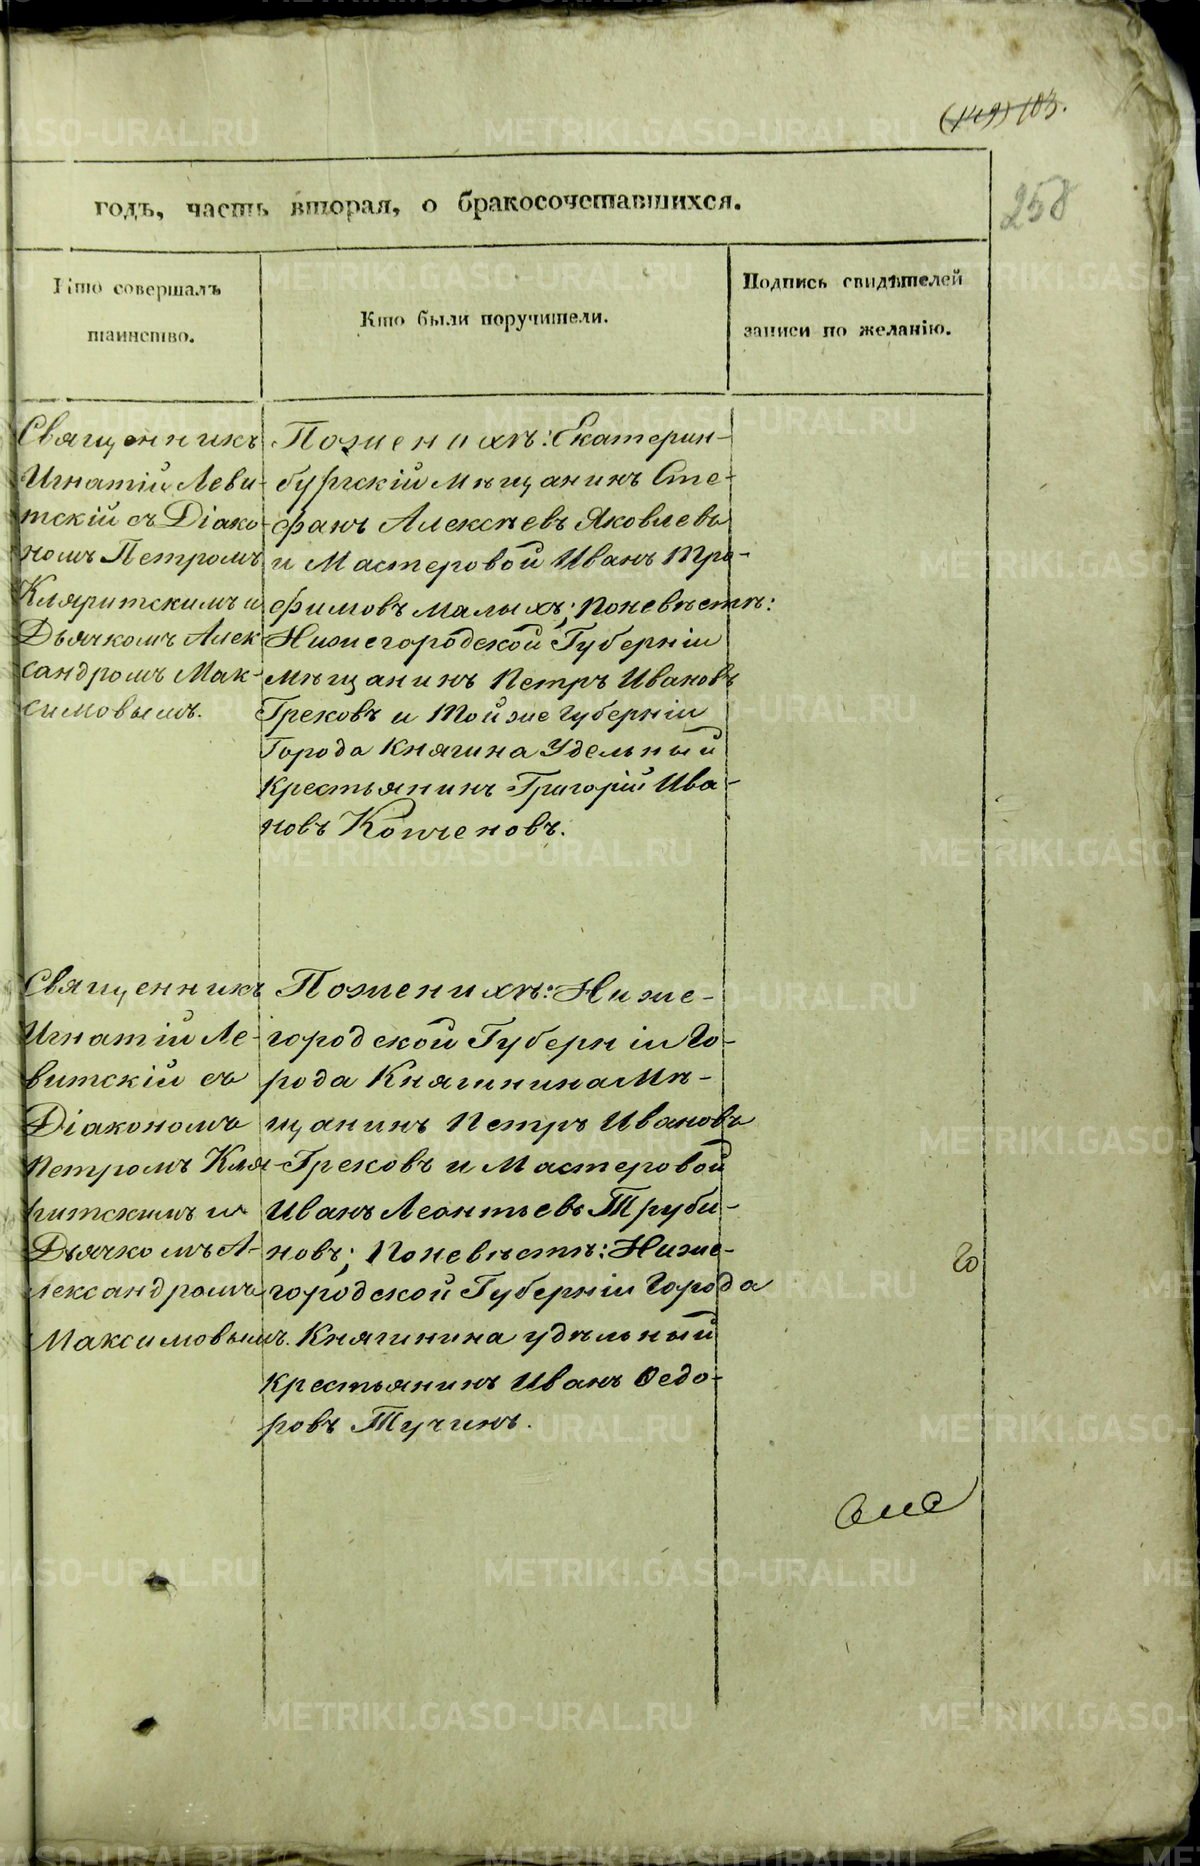 (149) 103.
258
годъ, часть вторая, о бракосочетавшихся.
Кто совершалъ
таинство.
Кто были поручители.
Подпись свидѣтелей
записи по желанію.
Священникъ
Игнатій Леви-
тскій съ Діако-
номъ Петромъ
Кляритскимъ и
Дьячкомъ Алек
сандромъ Мак-
симовымъ.
По женихѣ: Екатерин-
бургскій Мѣщанинъ Сте-
фанъ Алексѣевъ Яковлевъ
и Мастеровой Иванъ Тро-
фимовъ Малыхъ; По невѣстѣ:
Нижегородской Губерніи
Мѣщанинъ Петръ Ивановъ
Грековъ и Той же Губерніи
Города Княгина Удельный
Крестьянинъ Григорій Ива-
новъ
Священникъ
Игнатій Ле-
витскій съ
Діакономъ
Петромъ Кля-
ритскимъ и
Дьячкомъ А-
лександромъ
Максимовымъ.
По женихѣ: Ниже-
городской Губерніи Го-
рода Княгинина Мѣ-
щанинъ Петръ Ивановъ
Грековъ и Мастеровой
Иванъ Леонтьевъ Труби-
новъ; По невѣстѣ: Ниже-
городской Губерніи Города
Княгинина удѣльный
Крестьянинъ Иванъ Ѳедо-
ровъ Тучинъ.
METRIKI.GASO-URAL.RU